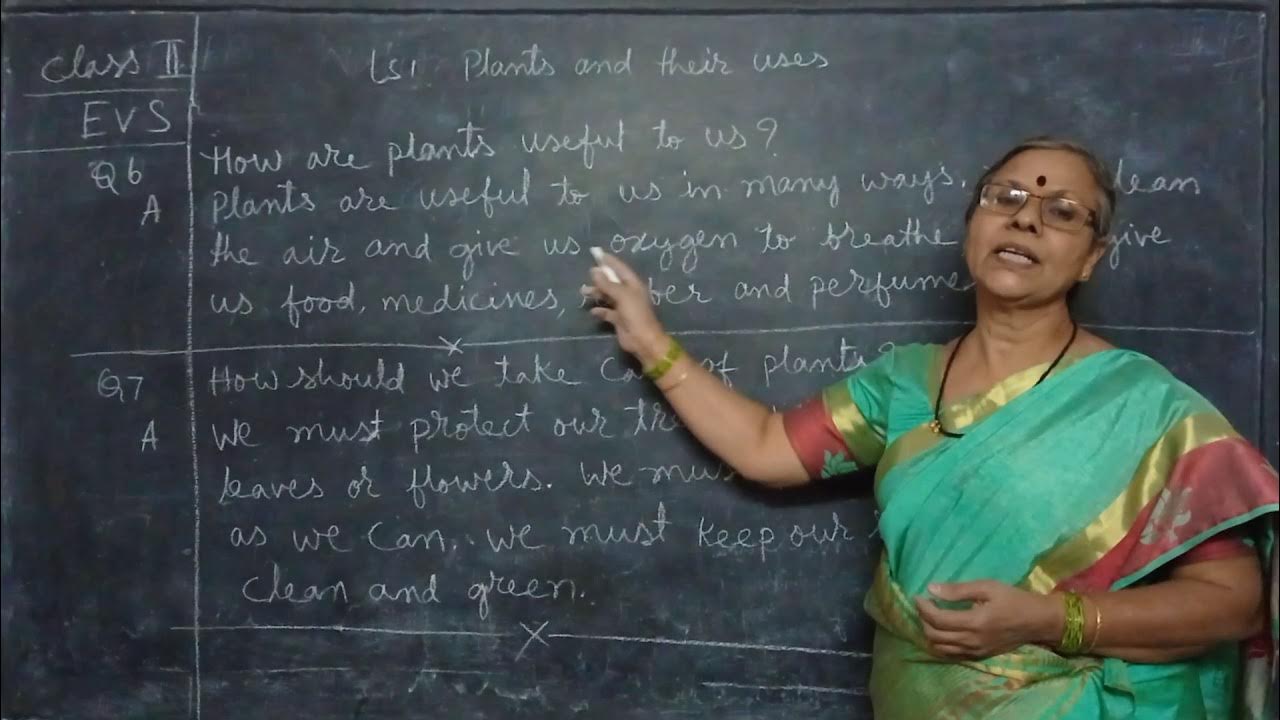 Class II
Ls 1 Plants and their uses
EVS
Q6 How are plants useful to us?
A Plants are useful to us in many ways. clean
the air and give us oxygen to breathe give
us food, medicines, and perfume
Q7 How should we take of plants?
A We must protect our
leaves or flowers. We must
as we can. We must keep our
clean and green.